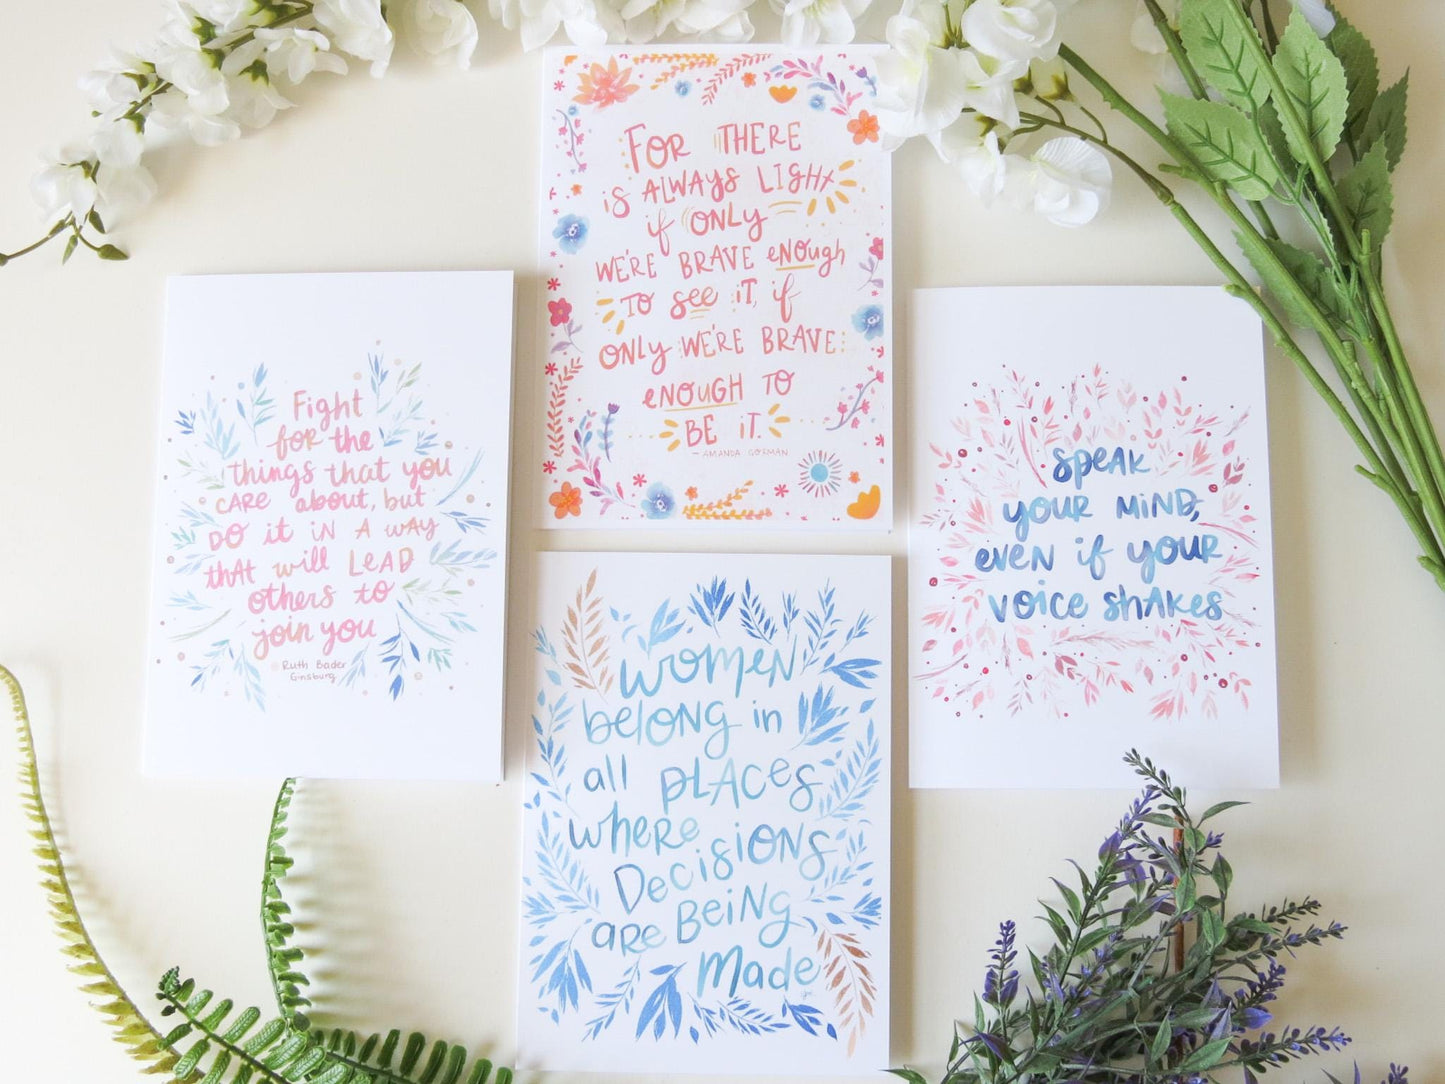 For there
is always light
if only
we're brave enough
to see it, if
only we're brave
enough to
be it.
- Amanda Gorman
Fight
for the
things that you
care about, but
do it in a way
that will lead
others to
join you
Ruth Bader
Ginsburg
speak
your mind,
even if your
voice shakes
Women
belong in
all places
where
Decisions
are Being
Made